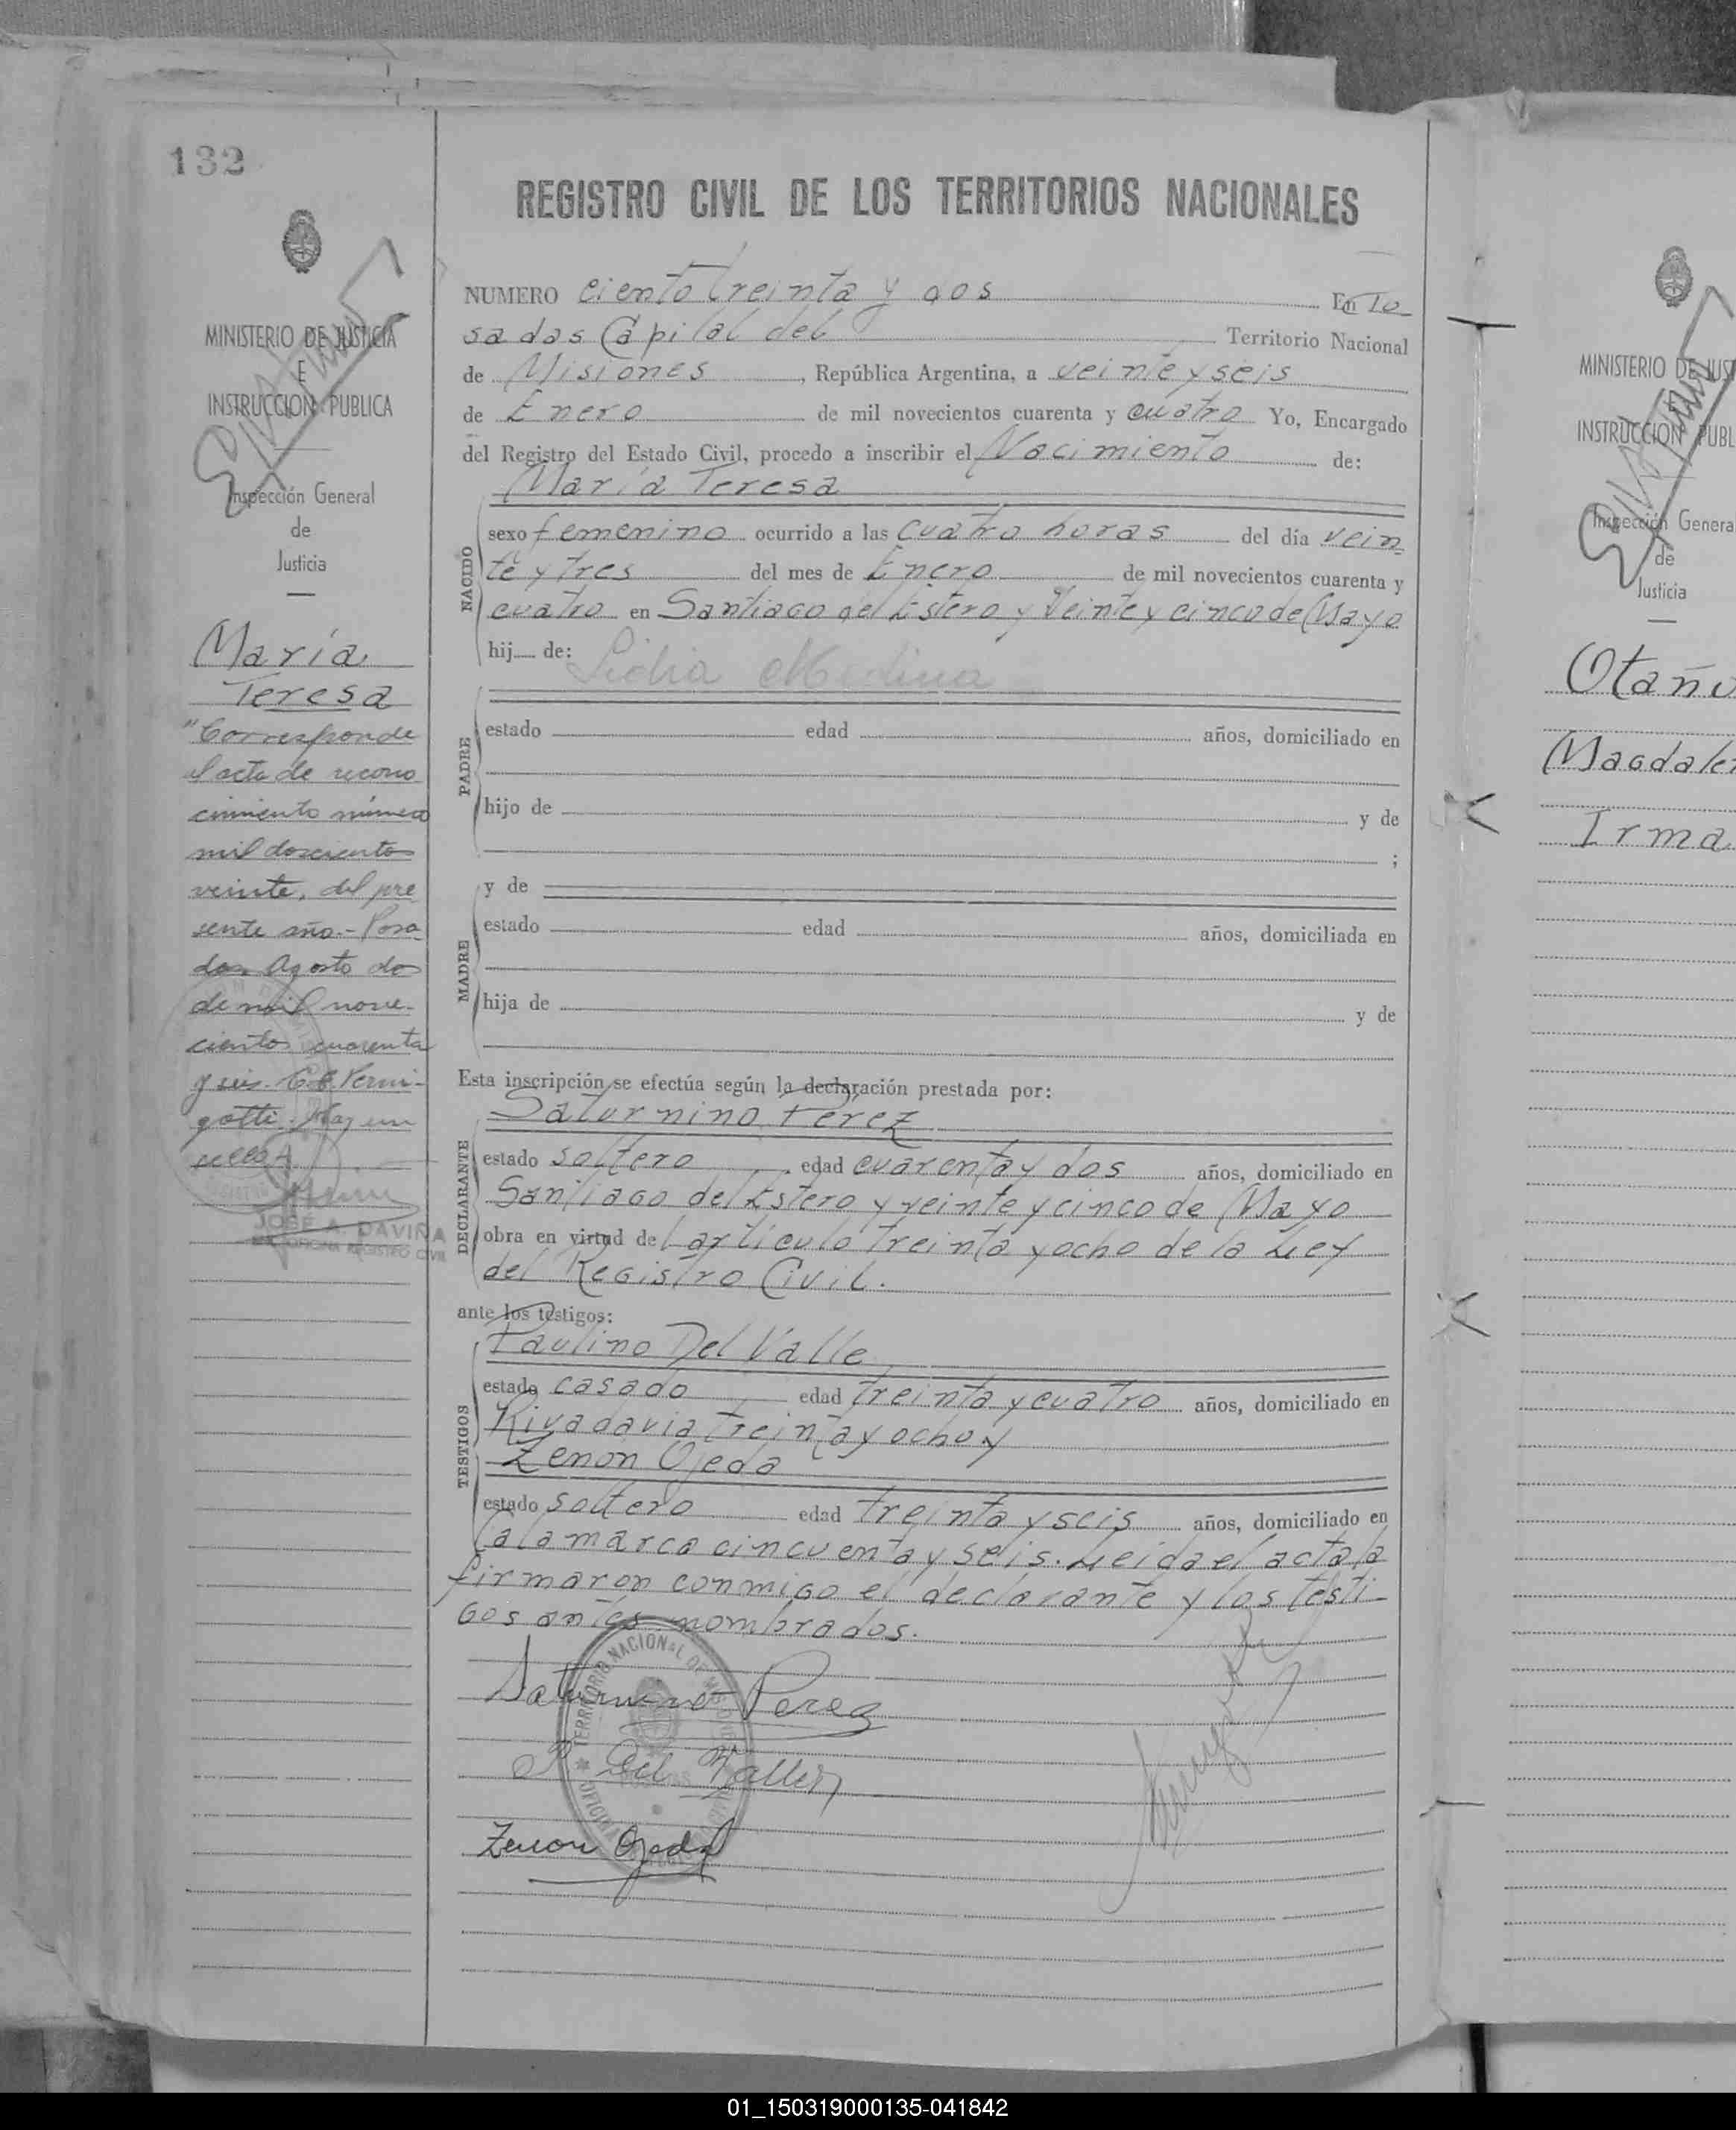 132
REGISTRO CIVIL DE LOS TERRITORIOS NACIONALES
NUMERO ciento treinta y dos En Po
sadas Capital del Territorio Nacional
de Misiones, República Argentina, a veinte y seis
de Enero de mil novecientos cuarenta y cuatro Yo, Encargado
del Registro del Estado Civil, procedo a inscribir el Nacimiento de:
María Teresa
NACIDO
sexo femenino ocurrido a las cuatro horas del día vein
te y tres del mes de Enero de mil novecientos cuarenta y
cuatro en Santiago del Estero y Veinte y cinco de Mayo
hij de: Lidia Medina
PADRE
estado edad años, domiciliado en
hijo de y de
;
y de
MADRE
estado edad años, domiciliada en
hija de y de
Esta inscripción se efectúa según la declaración prestada por:
Saturnino Perez
DECLARANTE
estado soltero, edad cuarenta y dos años, domiciliado en
Santiago del Estero y veinte y cinco de Mayo
obra en virtud del artículo treinta y ocho de la Ley
del Registro Civil.
ante los testigos:
Paulino Del Valle
TESTIGOS
estado casado edad treinta y cuatro años, domiciliado en
Rivadavia treinta y ocho y
Zenon Ojeda
estado soltero edad treinta y seis años, domiciliado en
Catamarca cincuenta y seis. Leida el acta la
firmaron conmigo el declarante y los testi-
gos antes nombrados.
Saturnino Perez
P. Del Valle
Zenon Ojeda
TERRITORIO NACIONAL DE MISIONES
MINISTERIO DE JUSTICIA
E
INSTRUCCION PUBLICA
Inspección General
de
Justicia
María
Teresa
"Corresponde
al acta de recono
cimiento número
mil doscientos
veinte, del pre
sente año.- Posa
das Agosto dos
de mil nove-
cientos cuarenta
y seis. C. E. Perni-
gotti. Hay un
sello
JOSÉ A. DAVIÑA
OFICINA REGISTRO CIVIL
MINISTERIO DE JUST
E
INSTRUCCION PUBL
Inspección Genera
de
Justicia
Otañu
Magdale
Irma
01_150319000135-041842